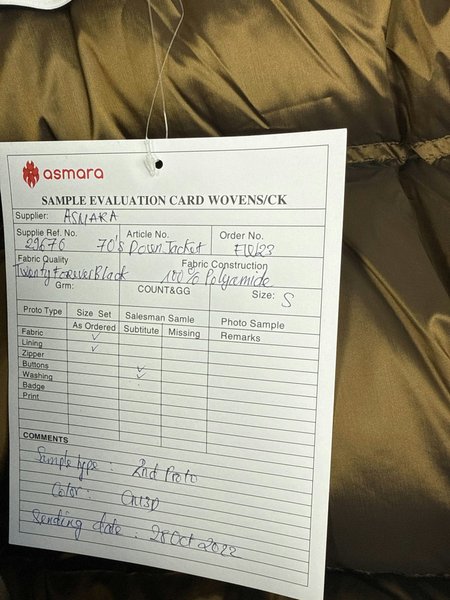 asmara
SAMPLE EVALUATION CARD WOVENS/CK
Supplier: ASMARA
Supplie Ref. No. Article No. Order No.
29676 70's Down Jacket FW23
Fabric Quality Fabric Construction
Twenty Forever Black 100% Polyamide
Grm: COUNT&GG Size: S
Proto Type Size Set Salesman Samle Photo Sample
As Ordered Subtitute Missing Remarks
Fabric ✓
Lining ✓
Zipper
Buttons ✓
Washing ✓
Badge
Print
COMMENTS
Sample type : 2nd Proto
Color :
Sending date : 28 Oct 2022